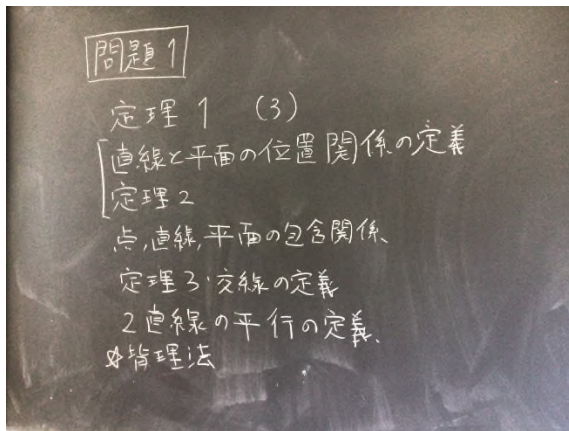 問題1
定理1 (3)
直線と平面の位置関係の定義
定理2
点,直線,平面の包含関係、
定理3・交線の定義
2直線の平行の定義、
☆背理法